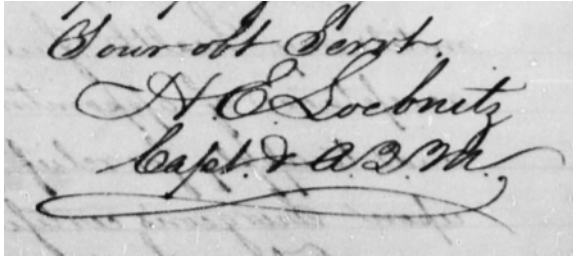 Your obt Servt.
H. E. Loebnitz
Capt. & A.Q.M.